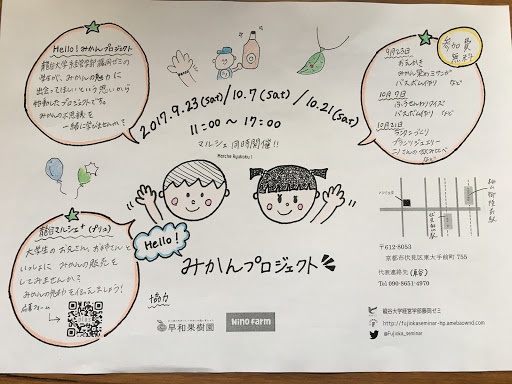 Hello! みかんプロジェクト
龍谷大学経営学部藤岡ゼミの
学生が、みかんの魅力に
出会ってほしいという思いから
始動したプロジェクトです。
みかんの不思議を
一緒に学びませんか?
2017.9.23(sat)/10.7(sat)/10.21(sat)
11:00~17:00
マルシェ同時開催!!
Marche Ryukoku!
参加費
無料
9月23日
おえかき
みかん染めミサンガ
バスボム作り など
10月7日
バスボム作り など
10月21日
ランタンづくり
など
龍谷マルシェ+(プリュ)
大学生のお兄さん、お姉さんと
いっしょに みかんの販売を
してみませんか?
みかんの魅力を伝えましょう!
応募フォーム
Hello!
みかんプロジェクト
協力
早和果樹園
Nino Farm
〒612-8053
京都市伏見区東大手町 755
代表連絡先
Tel 090-8651-4970
龍谷大学経営学部藤岡ゼミ
http://fujiokaseminar-hp.amebaownd.com
@Fujioka_seminar